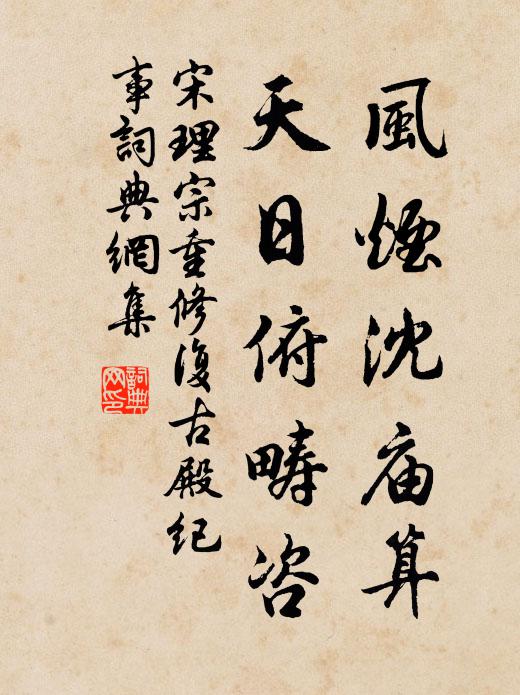 風煙沈庙算
天日俯畴咨
宋理宗重修復古殿紀
事詞典網集
詞典
网印